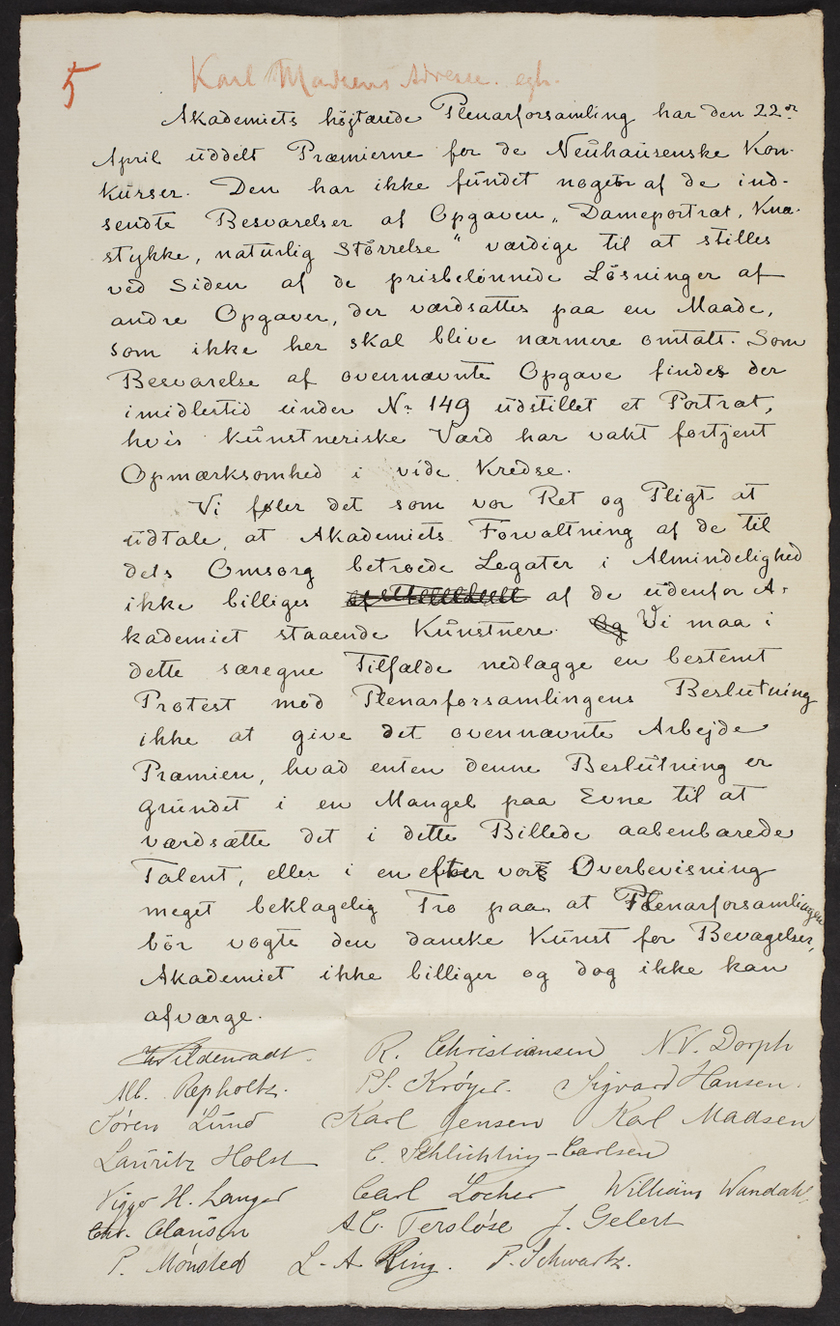 5 Karl Madsens Adresse. egh.
Akademiets höjtærede Plenarforsamling har den 22de
April uddelt Præmierne for de Neuhausenske Kon-
kurser. Den har ikke fundet nogen af de ind-
sendte Besvarelser af Opgaven „Dameportræt, Knæ-
stykke, naturlig Störrelse“ værdige til at stilles
ved Siden af de prisbelönnede Lösninger af
andre Opgaver, der værdsattes paa en Maade,
som ikke her skal blive nærmere omtalt. Som
Besvarelse af ovennævnte Opgave findes der
imidlertid under No 149 udstillet et Portræt,
hvis kunstneriske Værd har vakt fortjent
Opmærksomhed i vide Kredse.
Vi føler det som vor Ret og Pligt at
udtale, at Akademiets Forvaltning af de til
dets Omsorg betroede Legater i Almindelighed
ikke billiges af de udenfor A-
kademiet staaende Kunstnere. Og Vi maa i
dette særegne Tilfælde nedlægge en bestemt
Protest mod Plenarforsamlingens Beslutning
ikke at give det ovennævnte Arbejde
Præmien, hvad enten denne Beslutning er
grundet i en Mangel paa Evne til at
værdsætte det i dette Billede aabenbarede
Talent, eller i en efter vor Overbevisning
meget beklagelig Tro paa at Plenarforsamlingen
bör vogte den danske Kunst for Bevægelser,
Akademiet ikke billiger og dog ikke kan
afværge.
Wildenradt. R. Christiansen N.V. Dorph
Alb. Repholtz. P.S. Krøyer. Sigvard Hansen.
Søren Lund Karl Jensen Karl Madsen
Lauritz Holst C. Schlichting-Carlsen
Viggo H. Langer Carl Locher William Wandahl.
Chr. Clausen A.C. Tersløse J. Gelert
P. Mønsted L. A. Ring. F. Schwartz.